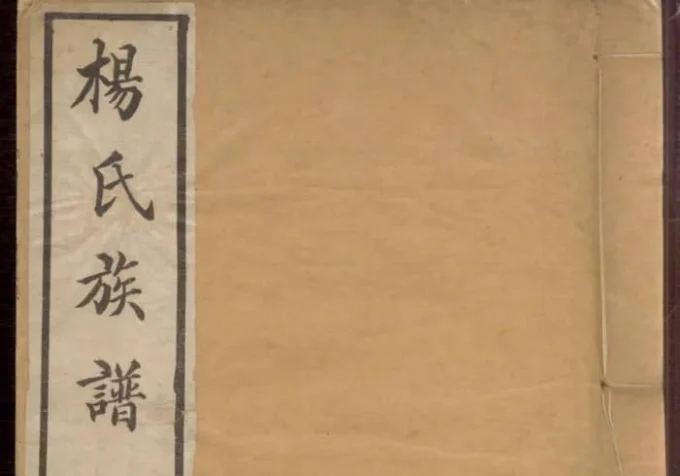 楊氏族譜